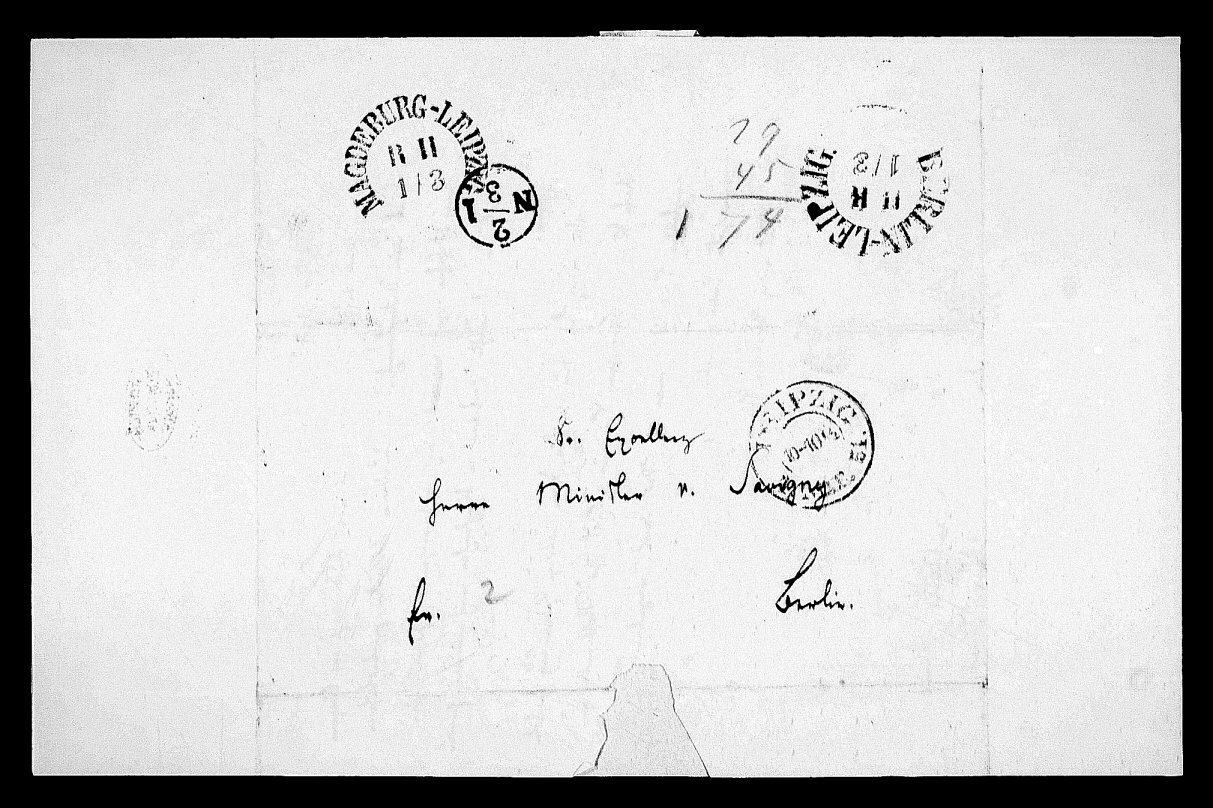 MAGDEBURG-LEIPZIG
R II
1/3
N 2/3 I
79
45
1 74
BERLIN-LEIPZIG.
II R
1/3
LEIPZIG
Sr. Excellenz
Herrn Minister v. Savigny
fr. 2
Berlin.